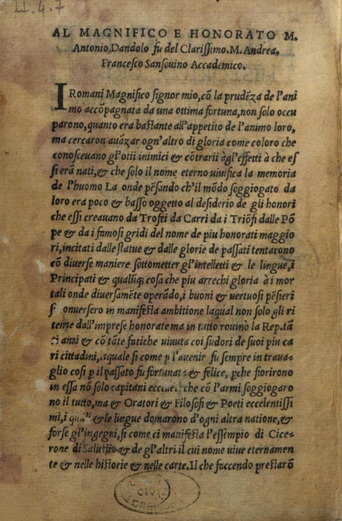 II.4.7
AL MAGNIFICO E HONORATO M.
Antonio, Dandolo fu del Clarissimo. M. Andrea,
Francesco Sansouino Accademico.
I Romani Magnifico signor mio, cō la prudēza de l'ani
mo accōpagnata da una ottima fortuna, non solo occu
parono, quanto era bastante all'appetito de l'animo loro,
ma cercaron auāzar ogn'altro di gloria come coloro che
conosceuano gl'otii inimici & cōtrarii agl'effetti à che es
si erā nati, & che solo il nome eterno uiuifica la memoria
de l'huomo La onde pēsando ch'il mōdo soggiogato da
loro era poco & basso oggetto al desiderio de gli honori
che essi creauano da Trofei da Carri da i Triōfi dalle Pō
pe & da i famosi gridi del nome de piu honorati maggio
ri, incitati dalle statue & dalle glorie de passati tentarono
cō diuerse maniere sottometter gl'intelletti & le lingue, i
Principati & qualūq; cosa che piu arrechi gloria à i mor
tali onde diuersamēte operādo, i buoni & uertuosi pēsieri
si conuersero in manifesta ambitione laqual non solo gli ri
tenne dall'imprese honorate ma in tutto rouinò la Repub
ci ami & cō tāte fatiche uiuuta coi sudori de suoi piu ca
ri cittadini, laquale si come p l'auenir fu sempre in traua
glio cosi p il passato fu fortunata & felice, pche fiorirono
in essa nō solo capitani eccellenti che cō l'armi soggiogaro
no il tutto, ma & Oratori & Filosofi & Poeti eccelentissi
mi, i quali & le lingue domarono d'ogni altra natione, &
forse gl'ingegni, si come ci manifesta l'essempio di Cice
rone di Salustio & de gl'altri il cui nome uiue eternamen
te & nelle historie & nelle carte. Il che faccendo prestarō
CIVICA